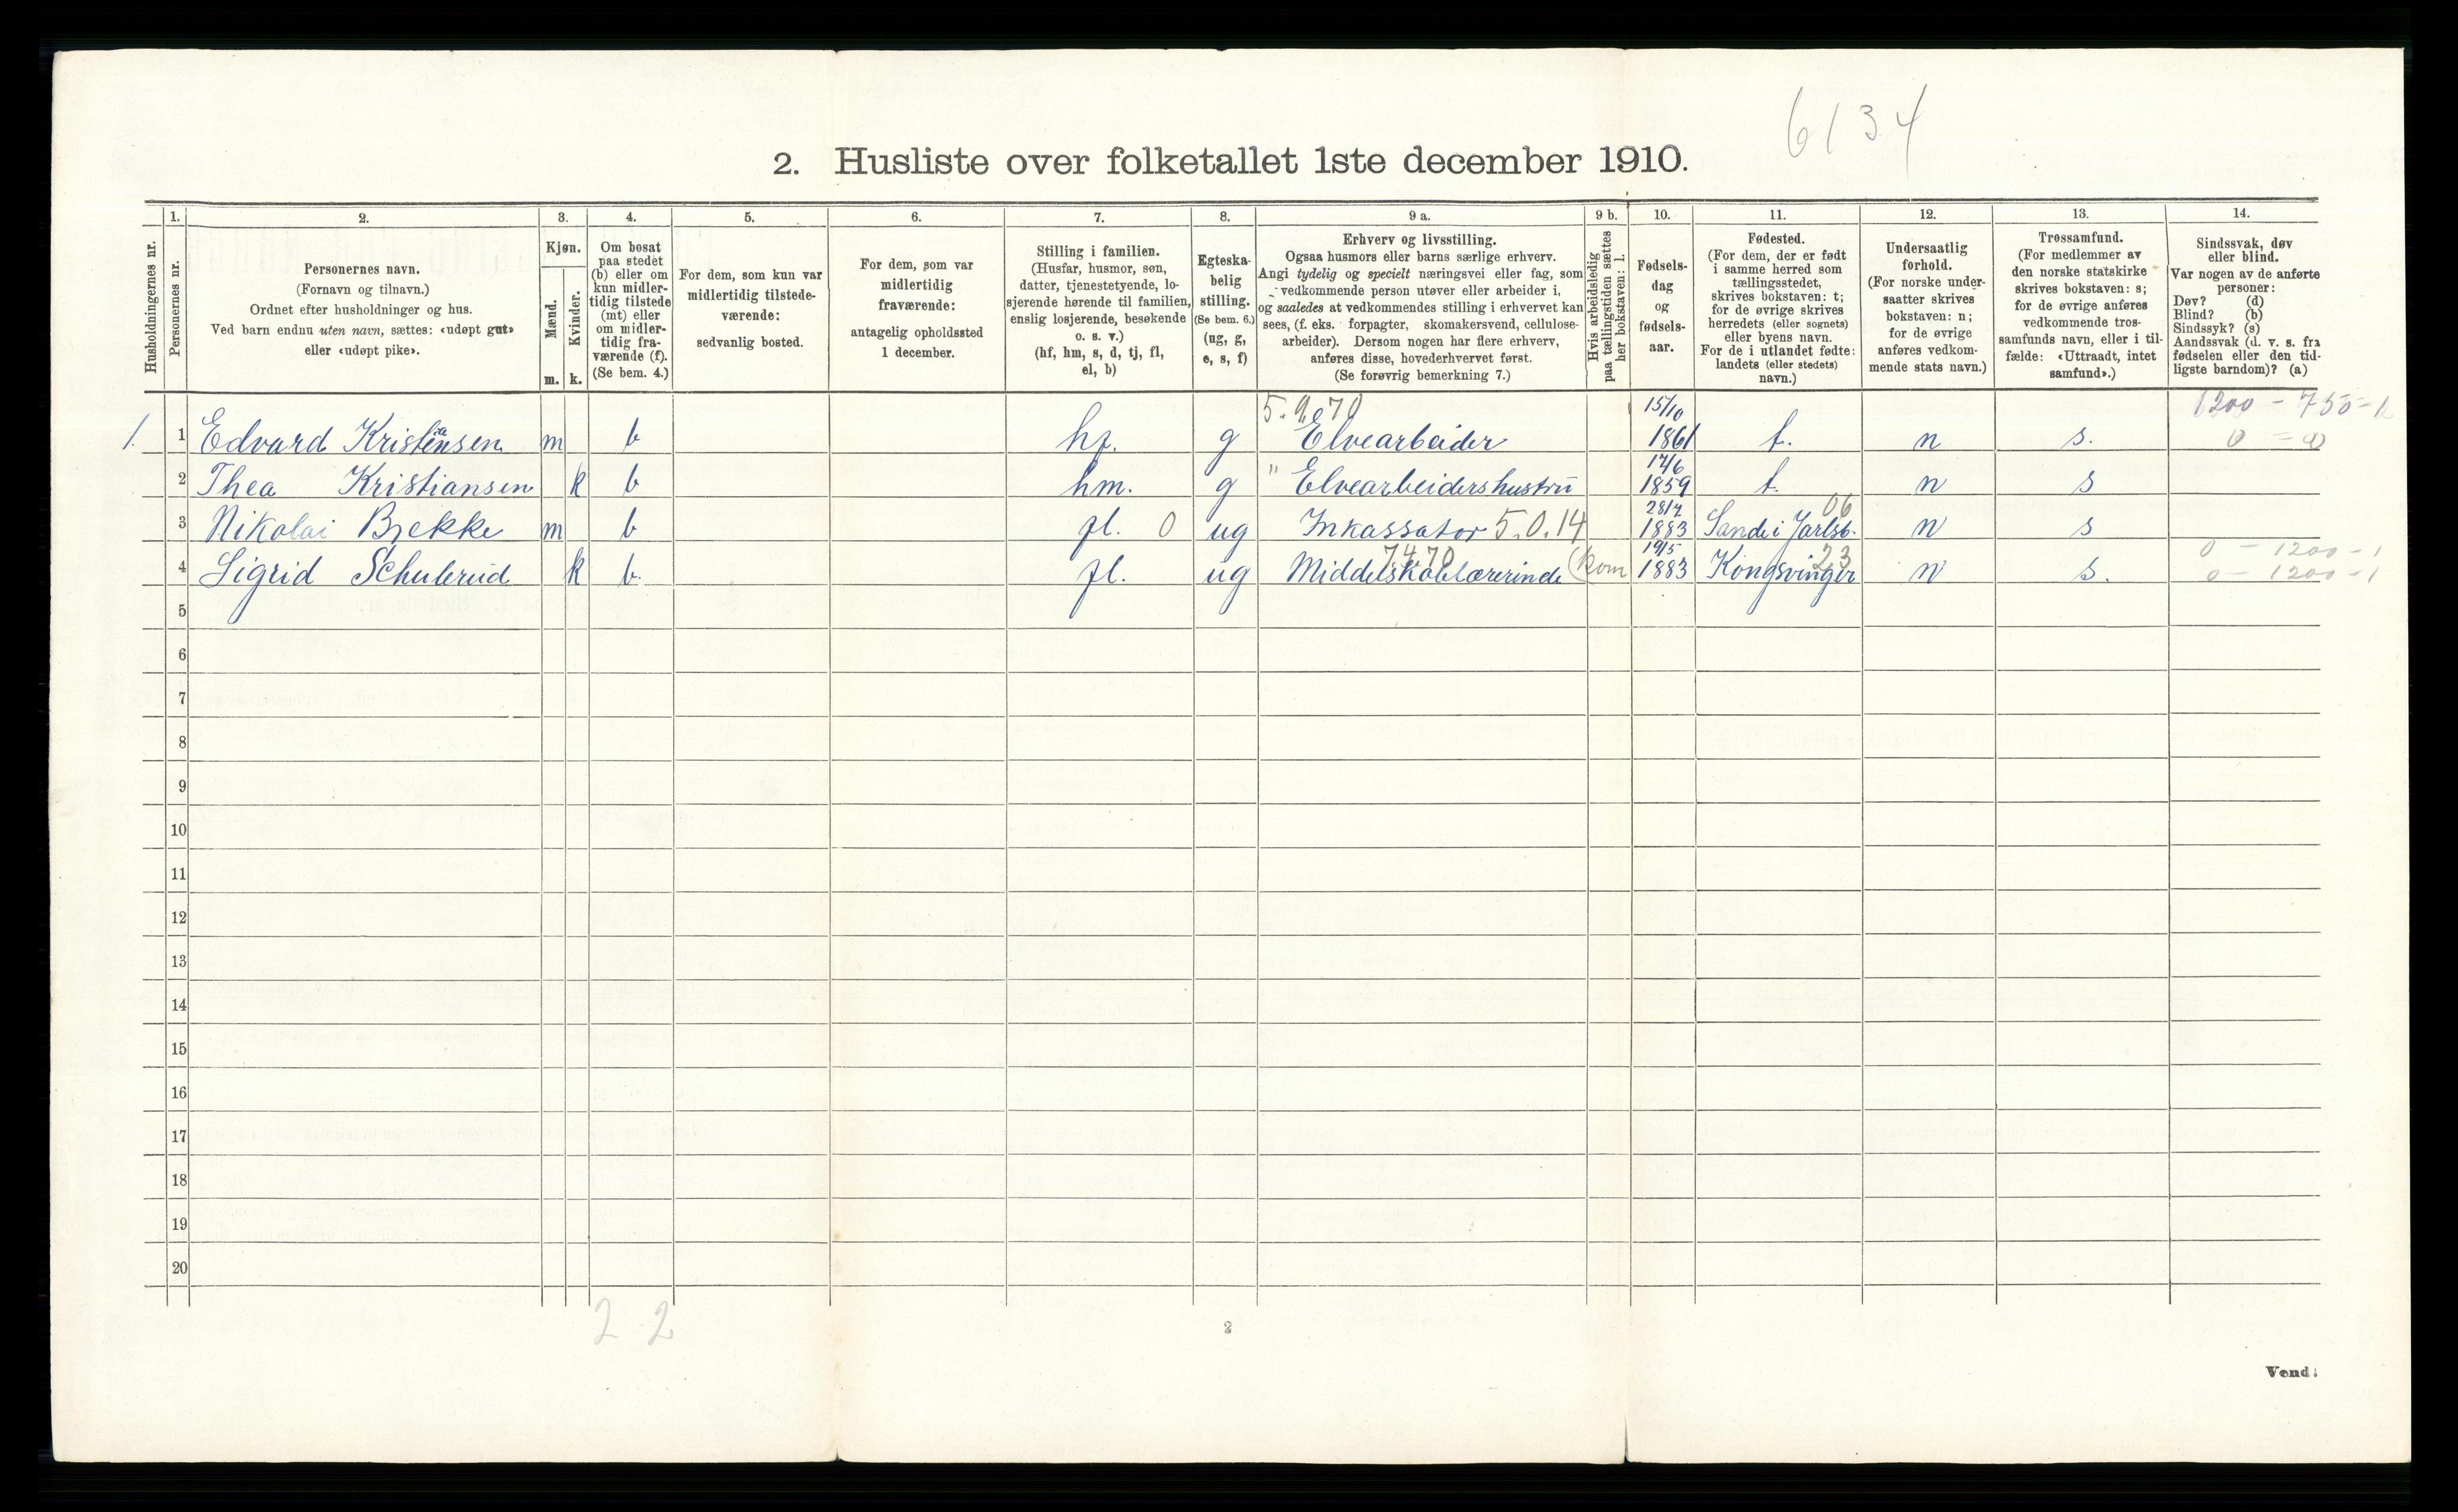 6134
2. Husliste over folketallet 1ste december 1910.
Husholdningernes nr.
1.
Personernes nr.
2.
Personernes navn.
(Fornavn og tilnavn.)
Ordnet efter husholdninger og hus.
Ved barn endnu uten navn, sættes: «udøpt gut»
eller «udøpt pike».
3.
Kjøn.
Mænd.
Kvinder.
m. k.
4.
Om bosat
paa stedet
(b) eller om
kun midler-
tidig tilstede
(mt) eller
om midler-
tidig fra-
værende (f).
(Se bem. 4.)
5.
For dem, som kun var
midlertidig tilstede-
værende:
sedvanlig bosted.
6.
For dem, som var
midlertidig
fraværende:
antagelig opholdssted
1 december.
7.
Stilling i familien.
(Husfar, husmor, søn,
datter, tjenestetyende, lo-
sjerende hørende til familien,
enslig losjerende, besøkende
o. s. v.)
(hf, hm, s, d, tj, fl,
el, b)
8.
Egteska-
belig
stilling.
(Se bem. 6.)
(ug, g,
e, s, f)
9 a.
Erhverv og livsstilling.
Ogsaa husmors eller barns særlige erhverv.
Angi tydelig og specielt næringsvei eller fag, som
vedkommende person utøver eller arbeider i,
og saaledes at vedkommendes stilling i erhvervet kan
sees, (f. eks. forpagter, skomakersvend, cellulose-
arbeider). Dersom nogen har flere erhverv,
anføres disse, hovederhvervet først.
(Se forøvrig bemerkning 7.)
9 b.
Hvis arbeidsledig
paa tællingstiden sættes
her bokstaven: l.
10.
Fødsels-
dag
og
fødsels-
aar.
11.
Fødested.
(For dem, der er født
i samme herred som
tællingsstedet,
skrives bokstaven: t;
for de øvrige skrives
herredets (eller sognets)
eller byens navn.
For de i utlandet fødte:
landets (eller stedets)
navn.)
12.
Undersaatlig
forhold.
(For norske under-
saatter skrives
bokstaven: n;
for de øvrige
anføres vedkom-
mende stats navn.)
13.
Trossamfund.
(For medlemmer av
den norske statskirke
skrives bokstaven: s;
for de øvrige anføres
vedkommende tros-
samfunds navn, eller i til-
fælde: «Uttraadt, intet
samfund».)
14.
Sindssvak, døv
eller blind.
Var nogen av de anførte
personer:
Døv? (d)
Blind? (b)
Sindssyk? (s)
Aandssvak (d. v. s. fra
fødselen eller den tid-
ligste barndom)? (a)
15/10 1200 - 750 - 1
1. 1 Edvard Kristiansen m b hf. g Elvearbeider 1861 t. n s.
17/6
2 Thea Kristiansen k b hm. g " Elvearbeidershustru 1859 t. n s
28/7 06
3 Nikolai Brekke m b fl. 0 ug Inkassator 5.0.14 1883 Sande i Jarlsb. n s
7.4.70 19/5 23 0 - 1200 - 1
4 Sigrid Schulerud k b. fl. ug Middelskolelærerinde (kom 1883 Kongsvinger n s. 0 - 1200 - 1
5
6
7
8
9
10
11
12
13
14
15
16
17
18
19
20
2 2
2
Vend!